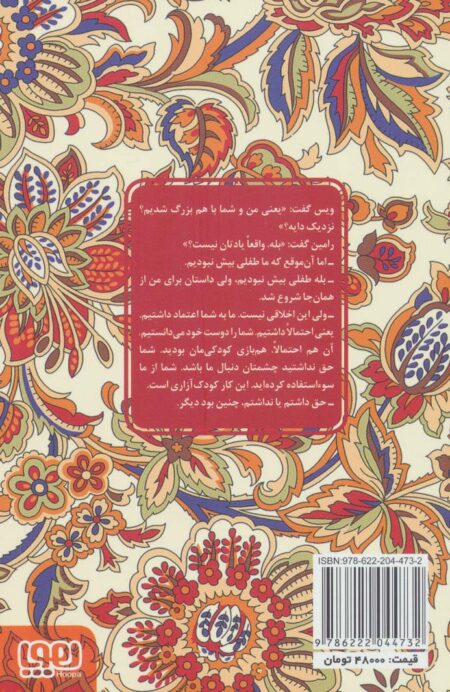 ویس گفت: «یعنی من و شما با هم بزرگ شدیم؟
نزدیک دایه؟»
رامین گفت: «بله. واقعاً یادتان نیست؟»
ـ اما آن‌موقع که ما طفلی بیش نبودیم.
ـ بله طفلی بیش نبودیم، ولی داستان برای من از
همان‌جا شروع شد.
ـ ولی این اخلاقی نیست. ما به شما اعتماد داشتیم.
یعنی احتمالاً داشتیم. شما را دوست خود می‌دانستیم.
آن هم احتمالاً. هم‌بازی کودکی‌مان بودید. شما
حق نداشتید چشمتان دنبال ما باشد. شما از ما
سوءاستفاده کرده‌اید. این کار کودک‌آزاری است.
ـ حق داشتم یا نداشتم، چنین بود دیگر.
ISBN:978-622-204-473-2
9 786222 044732
قیمت: ۴۸۰۰۰ تومان
هوپا
Hoopa